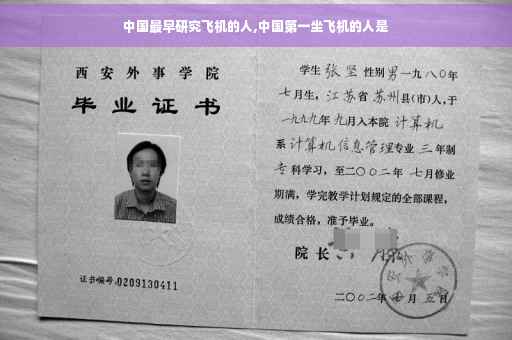 中国最早研究飞机的人,中国第一坐飞机的人是
西安外事学院
毕业证书
证书编号:0209130411
学生 张坚 性别 男 一九八〇年
七月生, 江苏省 苏州县(市)人,于
一九九九年 九月入本院 计算机
系 计算机信息管理专业 三 年制
专 科学习, 至二〇〇二年 七月修业
期满, 学完教学计划规定的全部课程,
成绩合格, 准予毕业。
院长
二〇〇二年 月五日